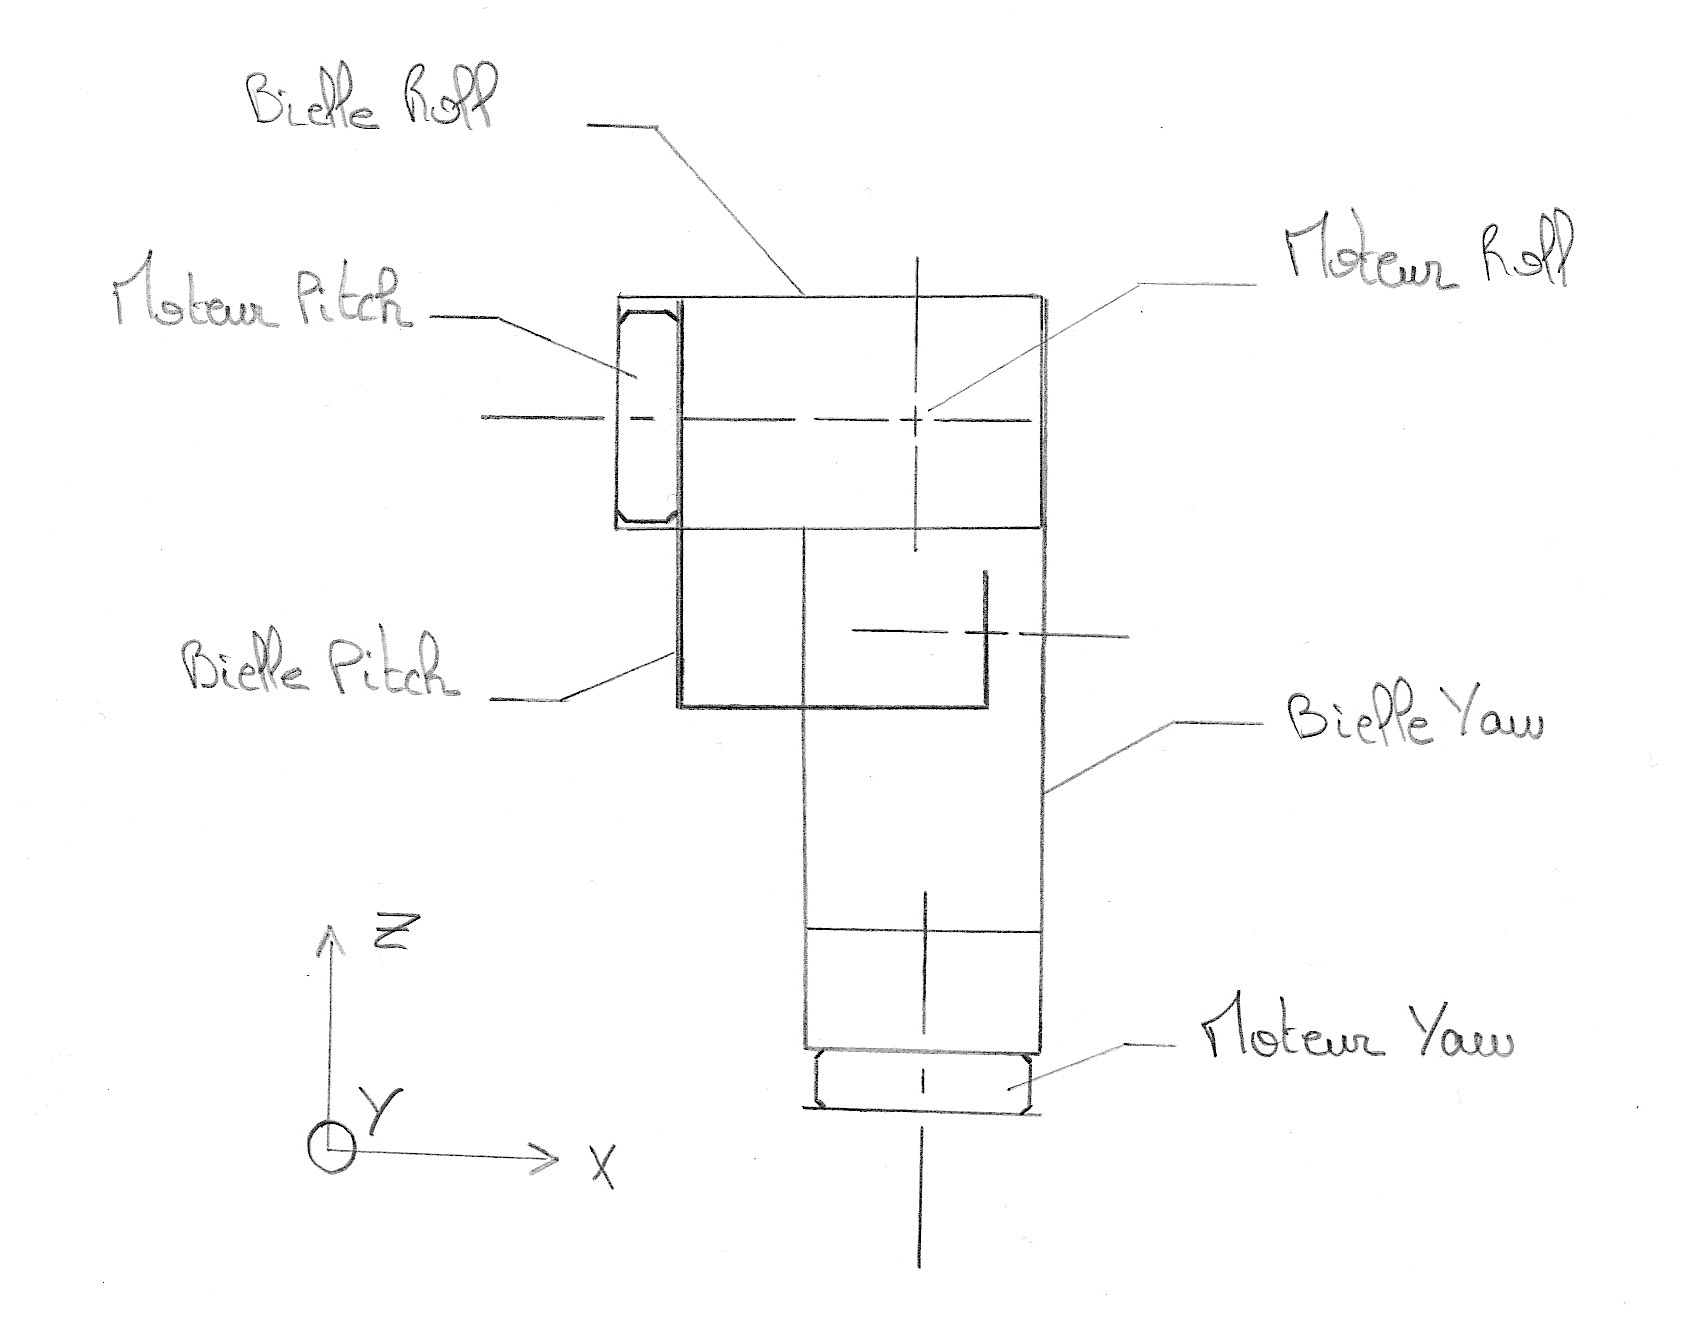 Bielle Roll
Moteur Roll
Moteur Pitch
Bielle Pitch
Bielle Yaw
Z
Moteur Yaw
Y
X